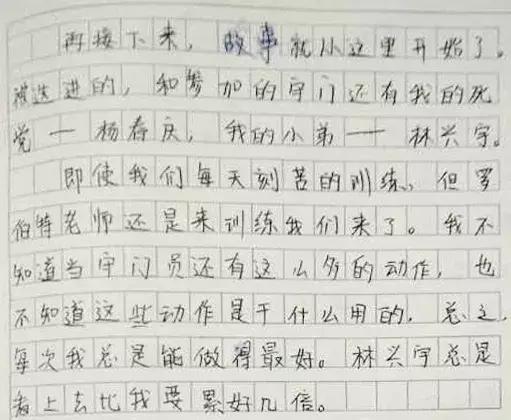 再接下来，故事就从这里开始了。
被选进的，和参加的守门还有我的死
党一杨春庆，我的小弟一林兴宇。
即使我们每天刻苦的训练，但罗
伯特老师还是来训练我们来了。我不
知道当守门员还有这么多的动作，也
不知道这些动作是干什么用的，总之，
每次我总是能做得最好。林兴宇总是
看上去比我要累好几倍。